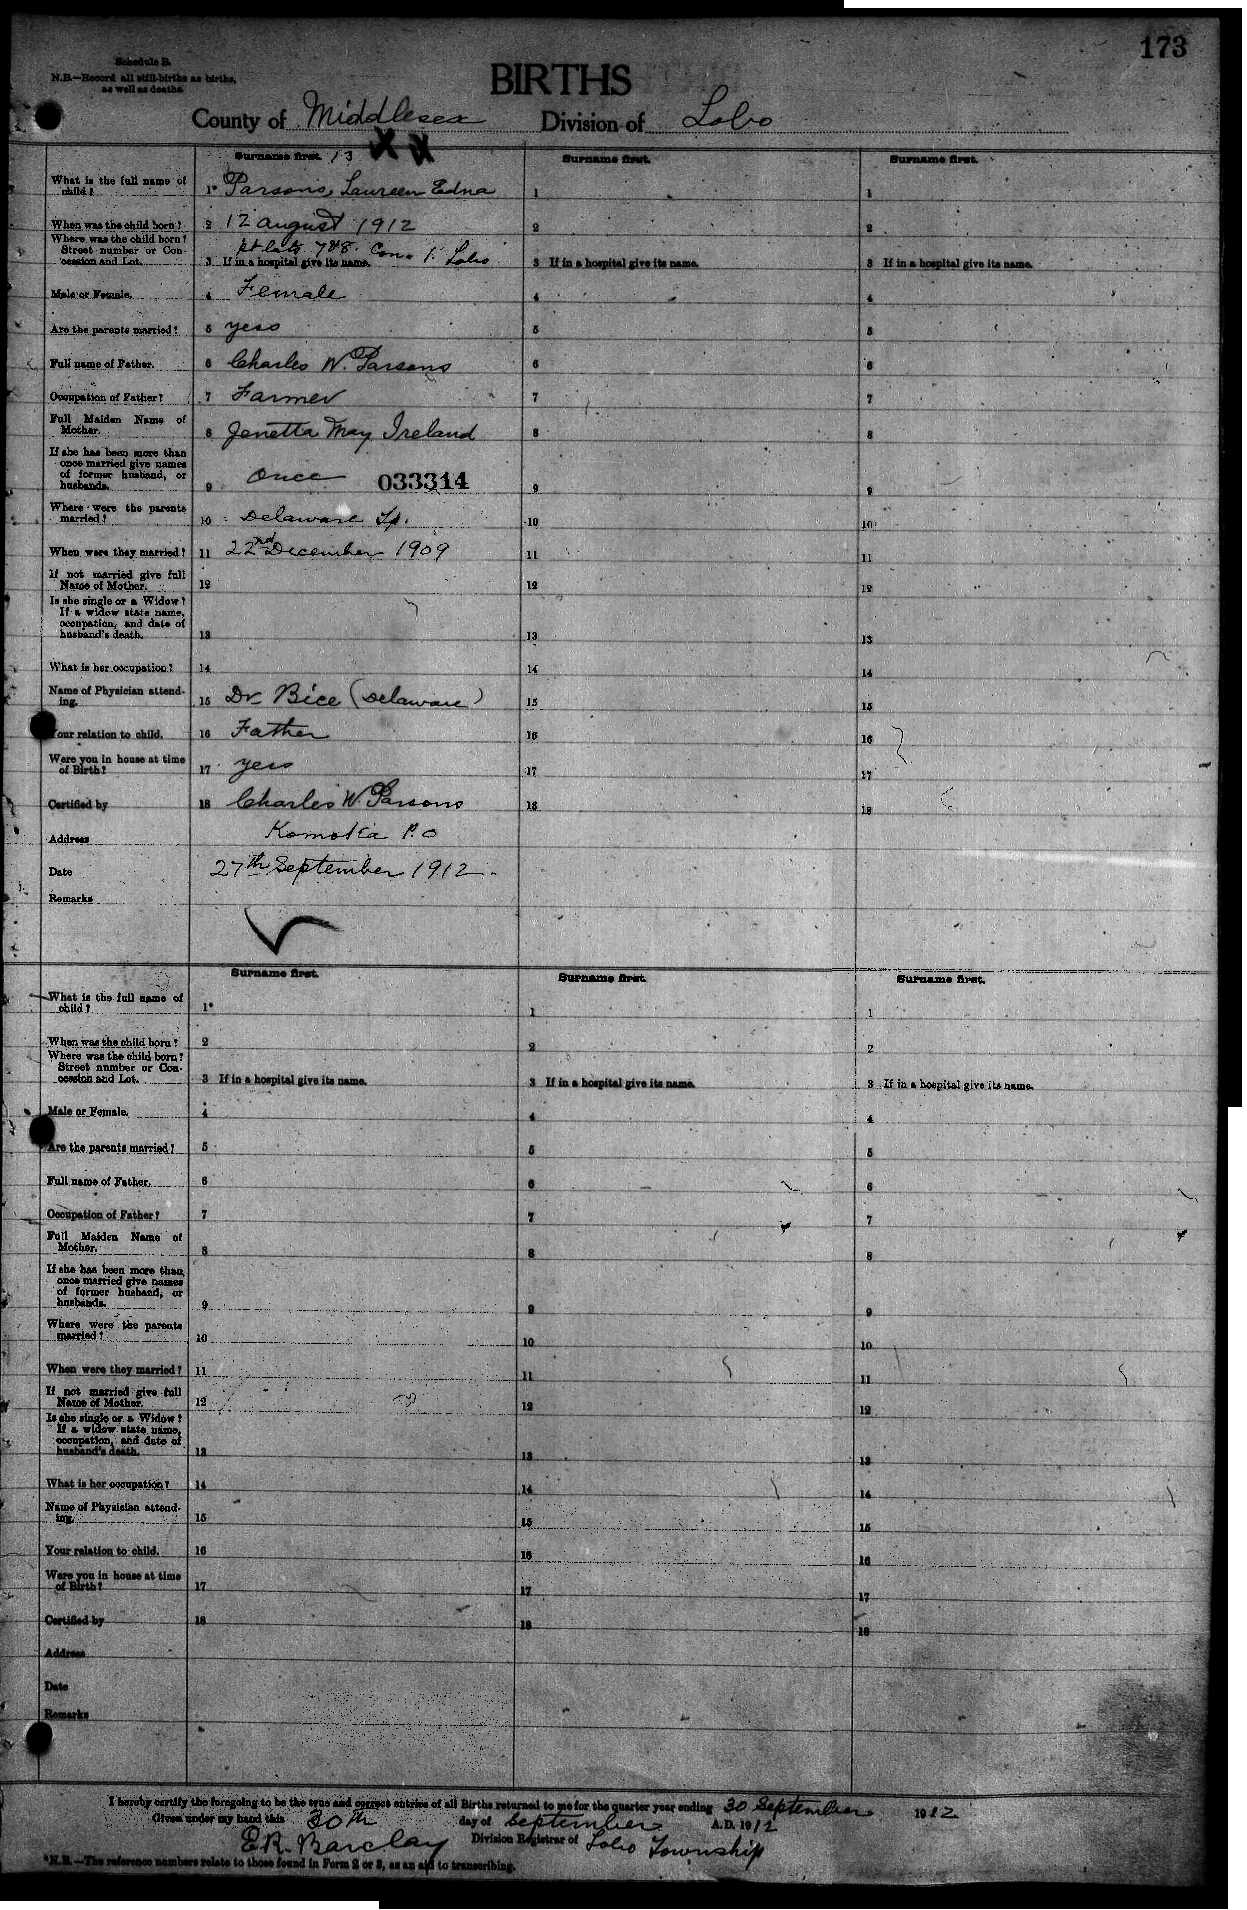 173
Schedule B.
N.B.—Record all still-births as births,
as well as deaths.
BIRTHS
County of Middlesex Division of Lobo
Surname first. 13 Surname first. Surname first.
What is the full name of
child? 1* Parsons, Laureen Edna 1 1
When was the child born? 2 12 August 1912 2 2
Where was the child born?
Street number or Con-
cession and Lot. pt lots 7 & 8. Con. 1. Lobo
3 If in a hospital give its name. 3 If in a hospital give its name. 3 If in a hospital give its name.
Male or Female. 4 Female 4 4
Are the parents married? 5 yess 5 5
Full name of Father. 6 Charles W. Parsons 6 6
Occupation of Father? 7 Farmer 7 7
Full Maiden Name of
Mother. 8 Jenetta May Ireland 8 8
If she has been more than
once married give names
of former husband, or
husbands. 9 Once 033314 9 9
Where were the parents
married? 10 Delaware Tp. 10 10
When were they married? 11 22nd December 1909 11 11
If not married give full
Name of Mother. 12 12 12
Is she single or a Widow?
If a widow state name,
occupation, and date of
husband's death. 13 13 13
What is her occupation? 14 14 14
Name of Physician attend-
ing. 15 Dr. Bice (Delaware) 15 15
Your relation to child. 16 Father 16 16
Were you in house at time
of Birth? 17 yess 17 17
Certified by 18 Charles W. Parsons 18 18
Address Komoka P.O
Date 27th September 1912.
Remarks
Surname first. Surname first. Surname first.
What is the full name of
child? 1* 1 1
When was the child born? 2 2 2
Where was the child born?
Street number or Con-
cession and Lot. 3 If in a hospital give its name. 3 If in a hospital give its name. 3 If in a hospital give its name.
Male or Female. 4 4 4
Are the parents married? 5 5 5
Full name of Father. 6 6 6
Occupation of Father? 7 7 7
Full Maiden Name of
Mother. 8 8 8
If she has been more than
once married give names
of former husband, or
husbands. 9 9 9
Where were the parents
married? 10 10 10
When were they married? 11 11 11
If not married give full
Name of Mother. 12 12 12
Is she single or a Widow?
If a widow state name,
occupation, and date of
husband's death. 13 13 13
What is her occupation? 14 14 14
Name of Physician attend-
ing. 15 15 15
Your relation to child. 16 16 16
Were you in house at time
of Birth? 17 17 17
Certified by 18 18 18
Address
Date
Remarks
I hereby certify the foregoing to be the true and correct entries of all Births returned to me for the quarter year ending 30 September 1912
Given under my hand this 30th day of September A.D. 1912
E.R. Barclay Division Registrar of Lobo Township
*N.B.—The reference numbers relate to those found in Form 2 or 3, as an aid to transcribing.